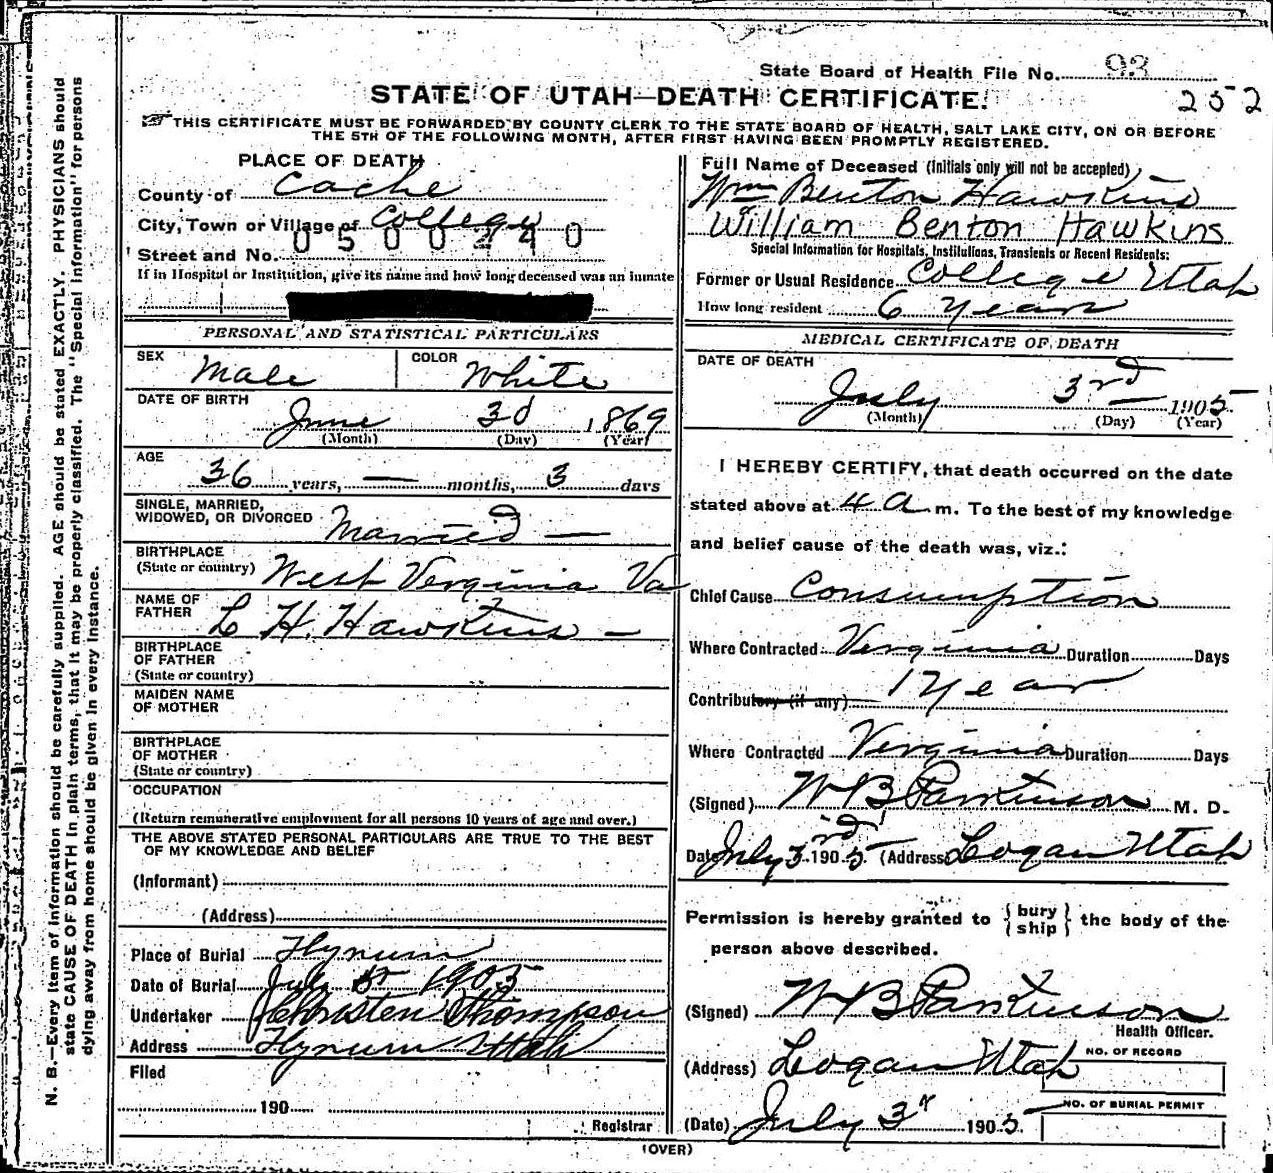 State Board of Health File No. 93
252
STATE OF UTAH—DEATH CERTIFICATE.
THIS CERTIFICATE MUST BE FORWARDED BY COUNTY CLERK TO THE STATE BOARD OF HEALTH, SALT LAKE CITY, ON OR BEFORE
THE 5TH OF THE FOLLOWING MONTH, AFTER FIRST HAVING BEEN PROMPTLY REGISTERED.
PLACE OF DEATH
County of Cache
City, Town or Village of College
0500240
Street and No.
If in Hospital or Institution, give its name and how long deceased was an inmate
PERSONAL AND STATISTICAL PARTICULARS
SEX Male COLOR White
DATE OF BIRTH
June 3d 1869
(Month) (Day) (Year)
AGE
36 years, — months, 3 days
SINGLE, MARRIED,
WIDOWED, OR DIVORCED Married —
BIRTHPLACE
(State or country) West Verginia Va
NAME OF
FATHER L H. Hawkins —
BIRTHPLACE
OF FATHER
(State or country)
MAIDEN NAME
OF MOTHER
BIRTHPLACE
OF MOTHER
(State or country)
OCCUPATION
(Return remunerative employment for all persons 10 years of age and over.)
THE ABOVE STATED PERSONAL PARTICULARS ARE TRUE TO THE BEST
OF MY KNOWLEDGE AND BELIEF
(Informant)
(Address)
Place of Burial Hyrum
Date of Burial July 5 1905
Undertaker Christen Thompson
Address Hyrum Utah
Filed
190
Registrar
Full Name of Deceased (Initials only will not be accepted)
Wm Benton Hawkins
William Benton Hawkins
Special Information for Hospitals, Institutions, Transients or Recent Residents:
Former or Usual Residence College Utah
How long resident 6 Years
MEDICAL CERTIFICATE OF DEATH
DATE OF DEATH
July 3rd 1905
(Month) (Day) (Year)
I HEREBY CERTIFY, that death occurred on the date
stated above at 4 a m. To the best of my knowledge
and belief cause of the death was, viz.:
Chief Cause Consumption
Where Contracted Verginia Duration Days
Contributory (if any) 1 Year
Where Contracted Verginia Duration Days
(Signed) W B Parkinson M. D.
Date July 3rd 1905 (Address) Logan Utah
Permission is hereby granted to { bury ship } the body of the
person above described.
(Signed) W B Parkinson
Health Officer.
(Address) Logan Utah
NO. OF RECORD
(Date) July 3r 1905
NO. OF BURIAL PERMIT
(OVER)
N. B.—Every item of information should be carefully supplied. AGE should be stated EXACTLY. PHYSICIANS should
state CAUSE OF DEATH in plain terms, that it may be properly classified. The "Special Information" for persons
dying away from home should be given in every instance.